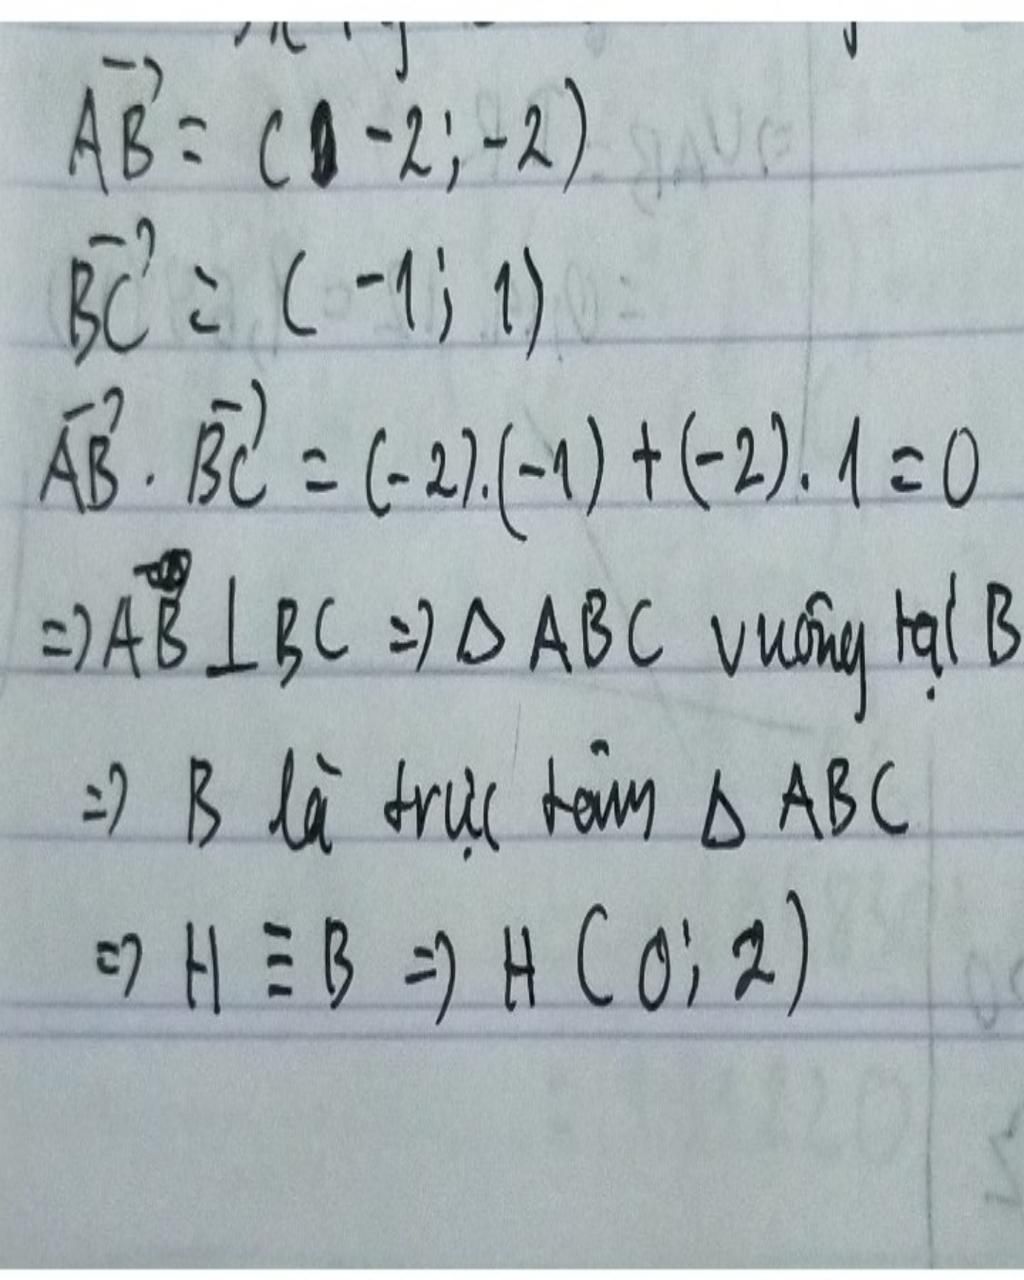 AB⃗ = ( -2; -2)
BC⃗ = ( -1; 1)
AB⃗ . BC⃗ = (-2).(-1) + (-2). 1 = 0
=> AB ⊥ BC => Δ ABC vuông tại B
=> B là trực tâm Δ ABC
=> H ≡ B => H ( 0; 2)